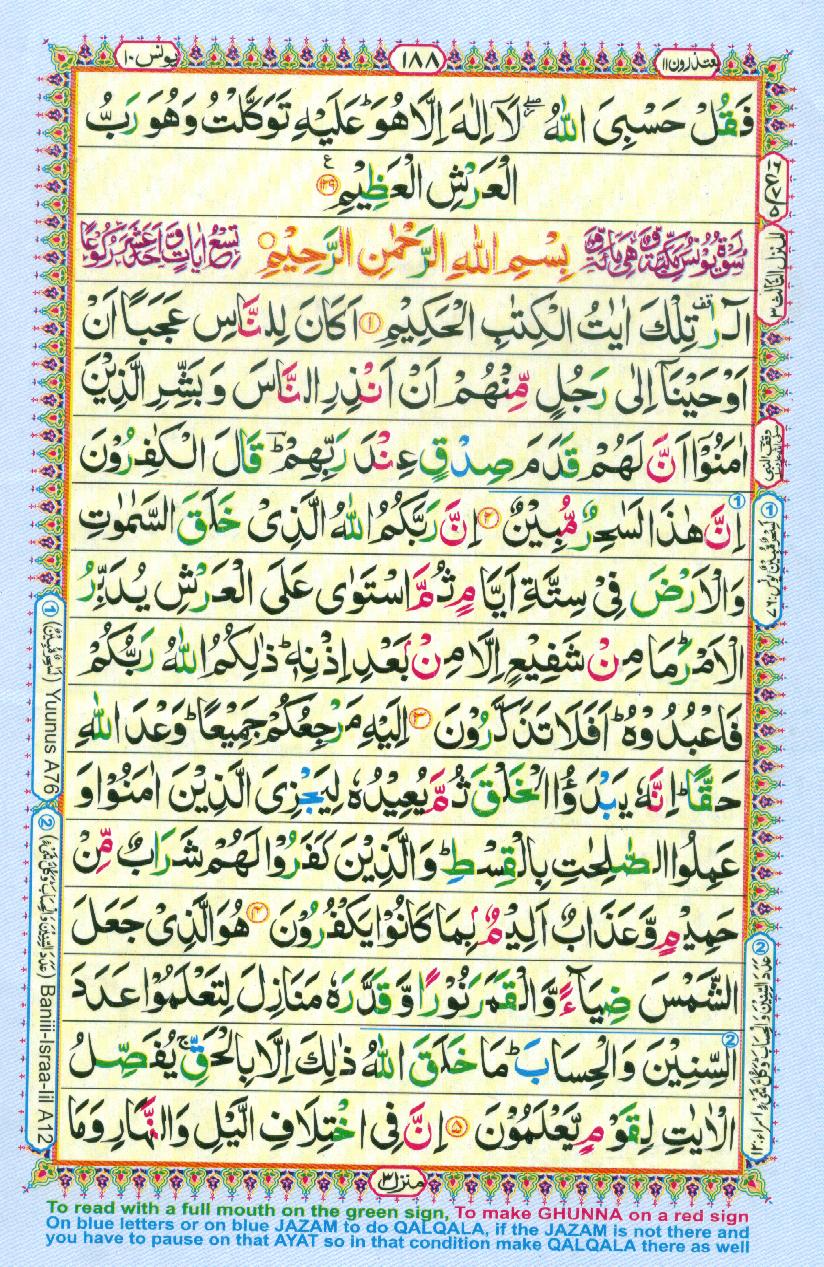 یعتذرون۱۱ ۱۸۸ یونس۱۰
فَقُلْ حَسْبِیَ اللّٰهُ ۖ لَاۤ اِلٰهَ اِلَّا هُوَ ؕ عَلَیْهِ تَوَكَّلْتُ وَهُوَ رَبُّ
الْعَرْشِ الْعَظِیْمِ ﴿۱۲۹﴾
سُوْرَةُ یُوْنُسَ مَكِّیَّةٌ وَّهِیَ مِائَةٌ وَّ بِسْمِ اللّٰهِ الرَّحْمٰنِ الرَّحِیْمِ تِسْعُ اٰیَاتٍ وَّاَحَدَ عَشَرَ رُكُوْعًا
الٓرٰ ۫ تِلْكَ اٰیٰتُ الْكِتٰبِ الْحَكِیْمِ ﴿۱﴾ اَكَانَ لِلنَّاسِ عَجَبًا اَنْ
اَوْحَیْنَاۤ اِلٰی رَجُلٍ مِّنْهُمْ اَنْ اَنْذِرِ النَّاسَ وَ بَشِّرِ الَّذِیْنَ
اٰمَنُوْۤا اَنَّ لَهُمْ قَدَمَ صِدْقٍ عِنْدَ رَبِّهِمْ ؕ قَالَ الْكٰفِرُوْنَ
اِنَّ هٰذَا لَسٰحِرٌ مُّبِیْنٌ ﴿۲﴾ اِنَّ رَبَّكُمُ اللّٰهُ الَّذِیْ خَلَقَ السَّمٰوٰتِ
وَالْاَرْضَ فِیْ سِتَّةِ اَیَّامٍ ثُمَّ اسْتَوٰی عَلَی الْعَرْشِ یُدَبِّرُ
الْاَمْرَ ؕ مَا مِنْ شَفِیْعٍ اِلَّا مِنْۢ بَعْدِ اِذْنِهٖ ؕ ذٰلِكُمُ اللّٰهُ رَبُّكُمْ
فَاعْبُدُوْهُ ؕ اَفَلَا تَذَكَّرُوْنَ ﴿۳﴾ اِلَیْهِ مَرْجِعُكُمْ جَمِیْعًا ؕ وَعْدَ اللّٰهِ
حَقًّا ؕ اِنَّهٗ یَبْدَؤُا الْخَلْقَ ثُمَّ یُعِیْدُهٗ لِیَجْزِیَ الَّذِیْنَ اٰمَنُوْا وَ
عَمِلُوا الصّٰلِحٰتِ بِالْقِسْطِ ؕ وَالَّذِیْنَ كَفَرُوْا لَهُمْ شَرَابٌ مِّنْ
حَمِیْمٍ وَّعَذَابٌ اَلِیْمٌۢ بِمَا كَانُوْا یَكْفُرُوْنَ ﴿۴﴾ هُوَ الَّذِیْ جَعَلَ
الشَّمْسَ ضِیَآءً وَّالْقَمَرَ نُوْرًا وَّقَدَّرَهٗ مَنَازِلَ لِتَعْلَمُوْا عَدَدَ
السِّنِیْنَ وَالْحِسَابَ ؕ مَا خَلَقَ اللّٰهُ ذٰلِكَ اِلَّا بِالْحَقِّ ۚ یُفَصِّلُ
الْاٰیٰتِ لِقَوْمٍ یَّعْلَمُوْنَ ﴿۵﴾ اِنَّ فِی اخْتِلَافِ الَّیْلِ وَالنَّهَارِ وَمَا
منزل۳
المنزل الثالث ۳
① (لَسٰحِرٌ مُّبِیْنٌ) Yuumus A76
② (عَدَدَ السِّنِیْنَ وَالْحِسَابَ وَكُلَّ شَیْءٍ) Baniii-Israa-Iil A12
To read with a full mouth on the green sign, To make GHUNNA on a red sign
On blue letters or on blue JAZAM to do QALQALA, if the JAZAM is not there and
you have to pause on that AYAT so in that condition make QALQALA there as well